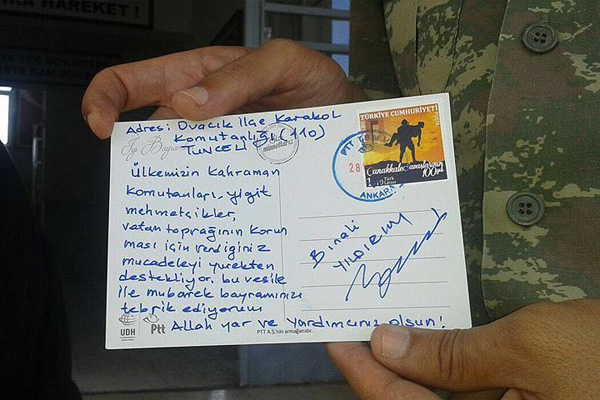 RA HAREKET !
Adres: Ovacık İlçe Karakol
Komutanlığı (110)
TUNCELİ
Ülkemizin Kahraman
komutanları, yiğit
mehmetçikler,
vatan toprağının korun
ması için verdiğiniz
mücadeleyi yürekten
destekliyor, bu vesile
ile mübarek bayramınızı
tebrik ediyorum
Allah yar ve yardımcınız olsun!
Binali
YILDIRIM
TÜRKİYE CUMHURİYETİ
Çanakkale Savaşlarının
100.yılı
PTT
28
ANKARA
UDH
Ptt
PTT A.Ş'nin armağanıdır.